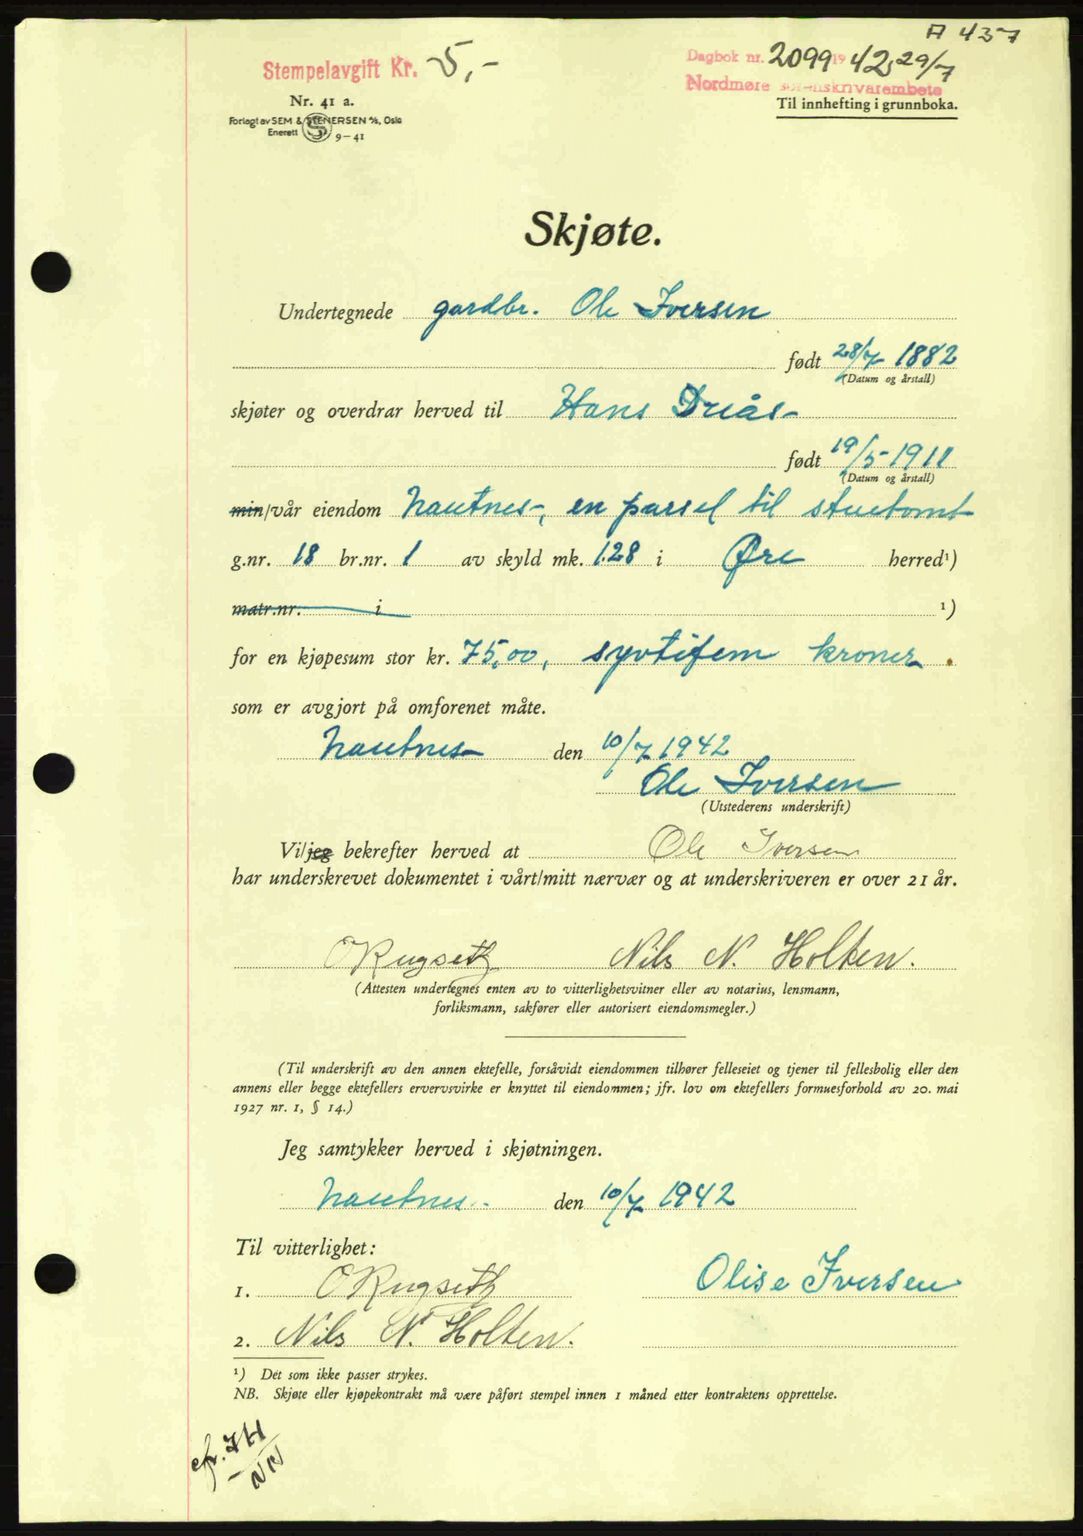 A 437
Stempelavgift Kr. 5,-
Dagbok nr. 2099 19 42, 29/7
Nordmøre sorenskrivarembete
Nr. 41 a.
Til innhefting i grunnboka.
Forlagt av SEM & STENERSEN A/S, Oslo
Enerett 9—41
Skjøte.
Undertegnede gardbr. Ole Iversen
født 28/7 1882
(Datum og årstall)
skjøter og overdrar herved til Hans Driås
født 19/5-1911
(Datum og årstall)
min/vår eiendom Nautnes, en parsel til stuetomt
g.nr. 18 br.nr. 1 av skyld mk. 1.28 i Øre herred¹)
matr.nr. i ¹)
for en kjøpesum stor kr. 75,00, syvtifem kroner.
som er avgjort på omforenet måte.
Nautnes den 10/7 1942
Ole Iversen
(Utstederens underskrift)
Vi/jeg bekrefter herved at Ole Iversen
har underskrevet dokumentet i vårt/mitt nærvær og at underskriveren er over 21 år.
O Rugseth Nils N. Holten.
(Attesten undertegnes enten av to vitterlighetsvitner eller av notarius, lensmann,
forliksmann, sakfører eller autorisert eiendomsmegler.)
(Til underskrift av den annen ektefelle, forsåvidt eiendommen tilhører felleseiet og tjener til fellesbolig eller den
annens eller begge ektefellers ervervsvirke er knyttet til eiendommen; jfr. lov om ektefellers formuesforhold av 20. mai
1927 nr. 1, § 14.)
Jeg samtykker herved i skjøtningen.
Nautnes den 10/7 1942
Til vitterlighet:
1. O Rugseth Olise Iversen
2. Nils N. Holten.
¹) Det som ikke passer strykes.
NB. Skjøte eller kjøpekontrakt må være påført stempel innen 1 måned etter kontraktens opprettelse.
NN